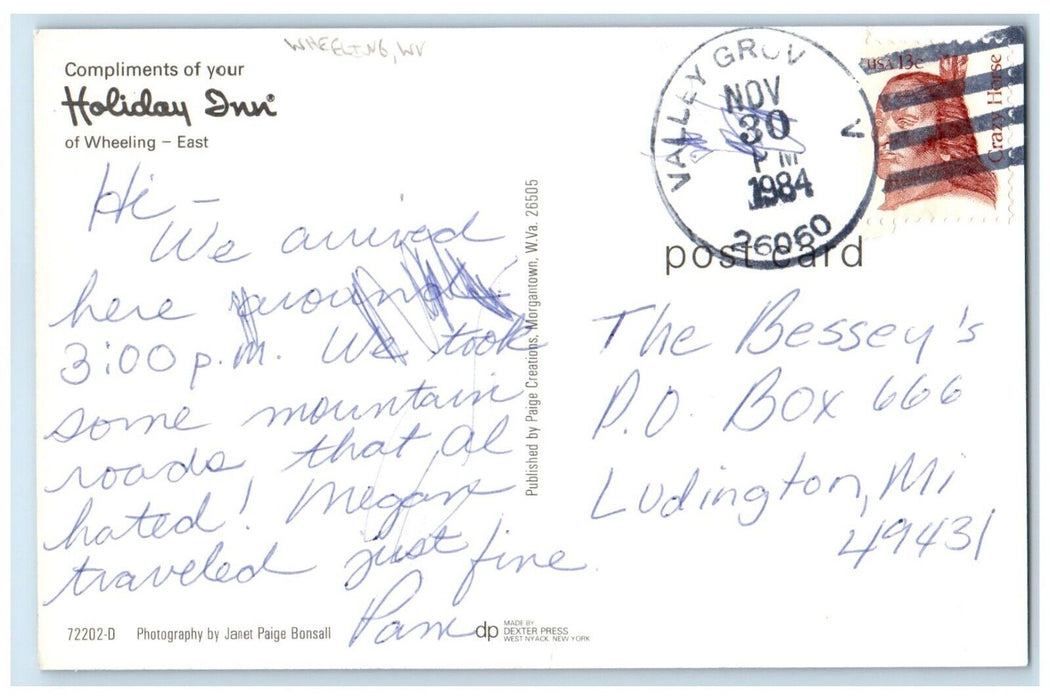 WHEELING, WV
Compliments of your
Holiday Inn®
of Wheeling – East
VALLEY GROV
V
NOV
30
PM
1984
26060
USA 13c
Crazy Horse
post card
Hi –
We arrived
here around
3:00 p.m. We took
some mountain
roads that Al
hated! Megan
traveled just fine.
Pam
Published by Paige Creations, Morgantown, W.Va. 26505
The Bessey's
P.O. Box 666
Ludington, Mi
49431
72202-D Photography by Janet Paige Bonsall
dp MADE BY
DEXTER PRESS
WEST NYACK, NEW YORK